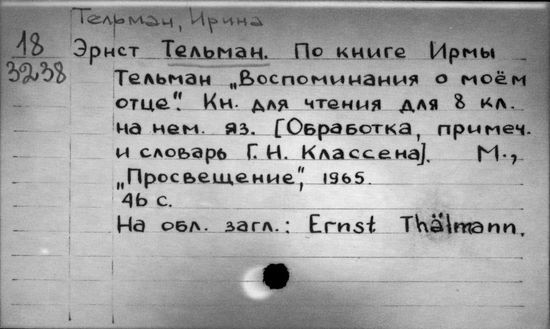 Тельман, Ирина
18
3238
Эрнст Тельман. По книге Ирмы
Тельман „Воспоминания о моём
отце". Кн. для чтения для 8 кл.
на нем. яз. [Обработка, примеч.
и словарь Г. Н. Классена]. М.,
„Просвещение", 1965.
46 с.
На обл. загл.: Ernst Thälmann.